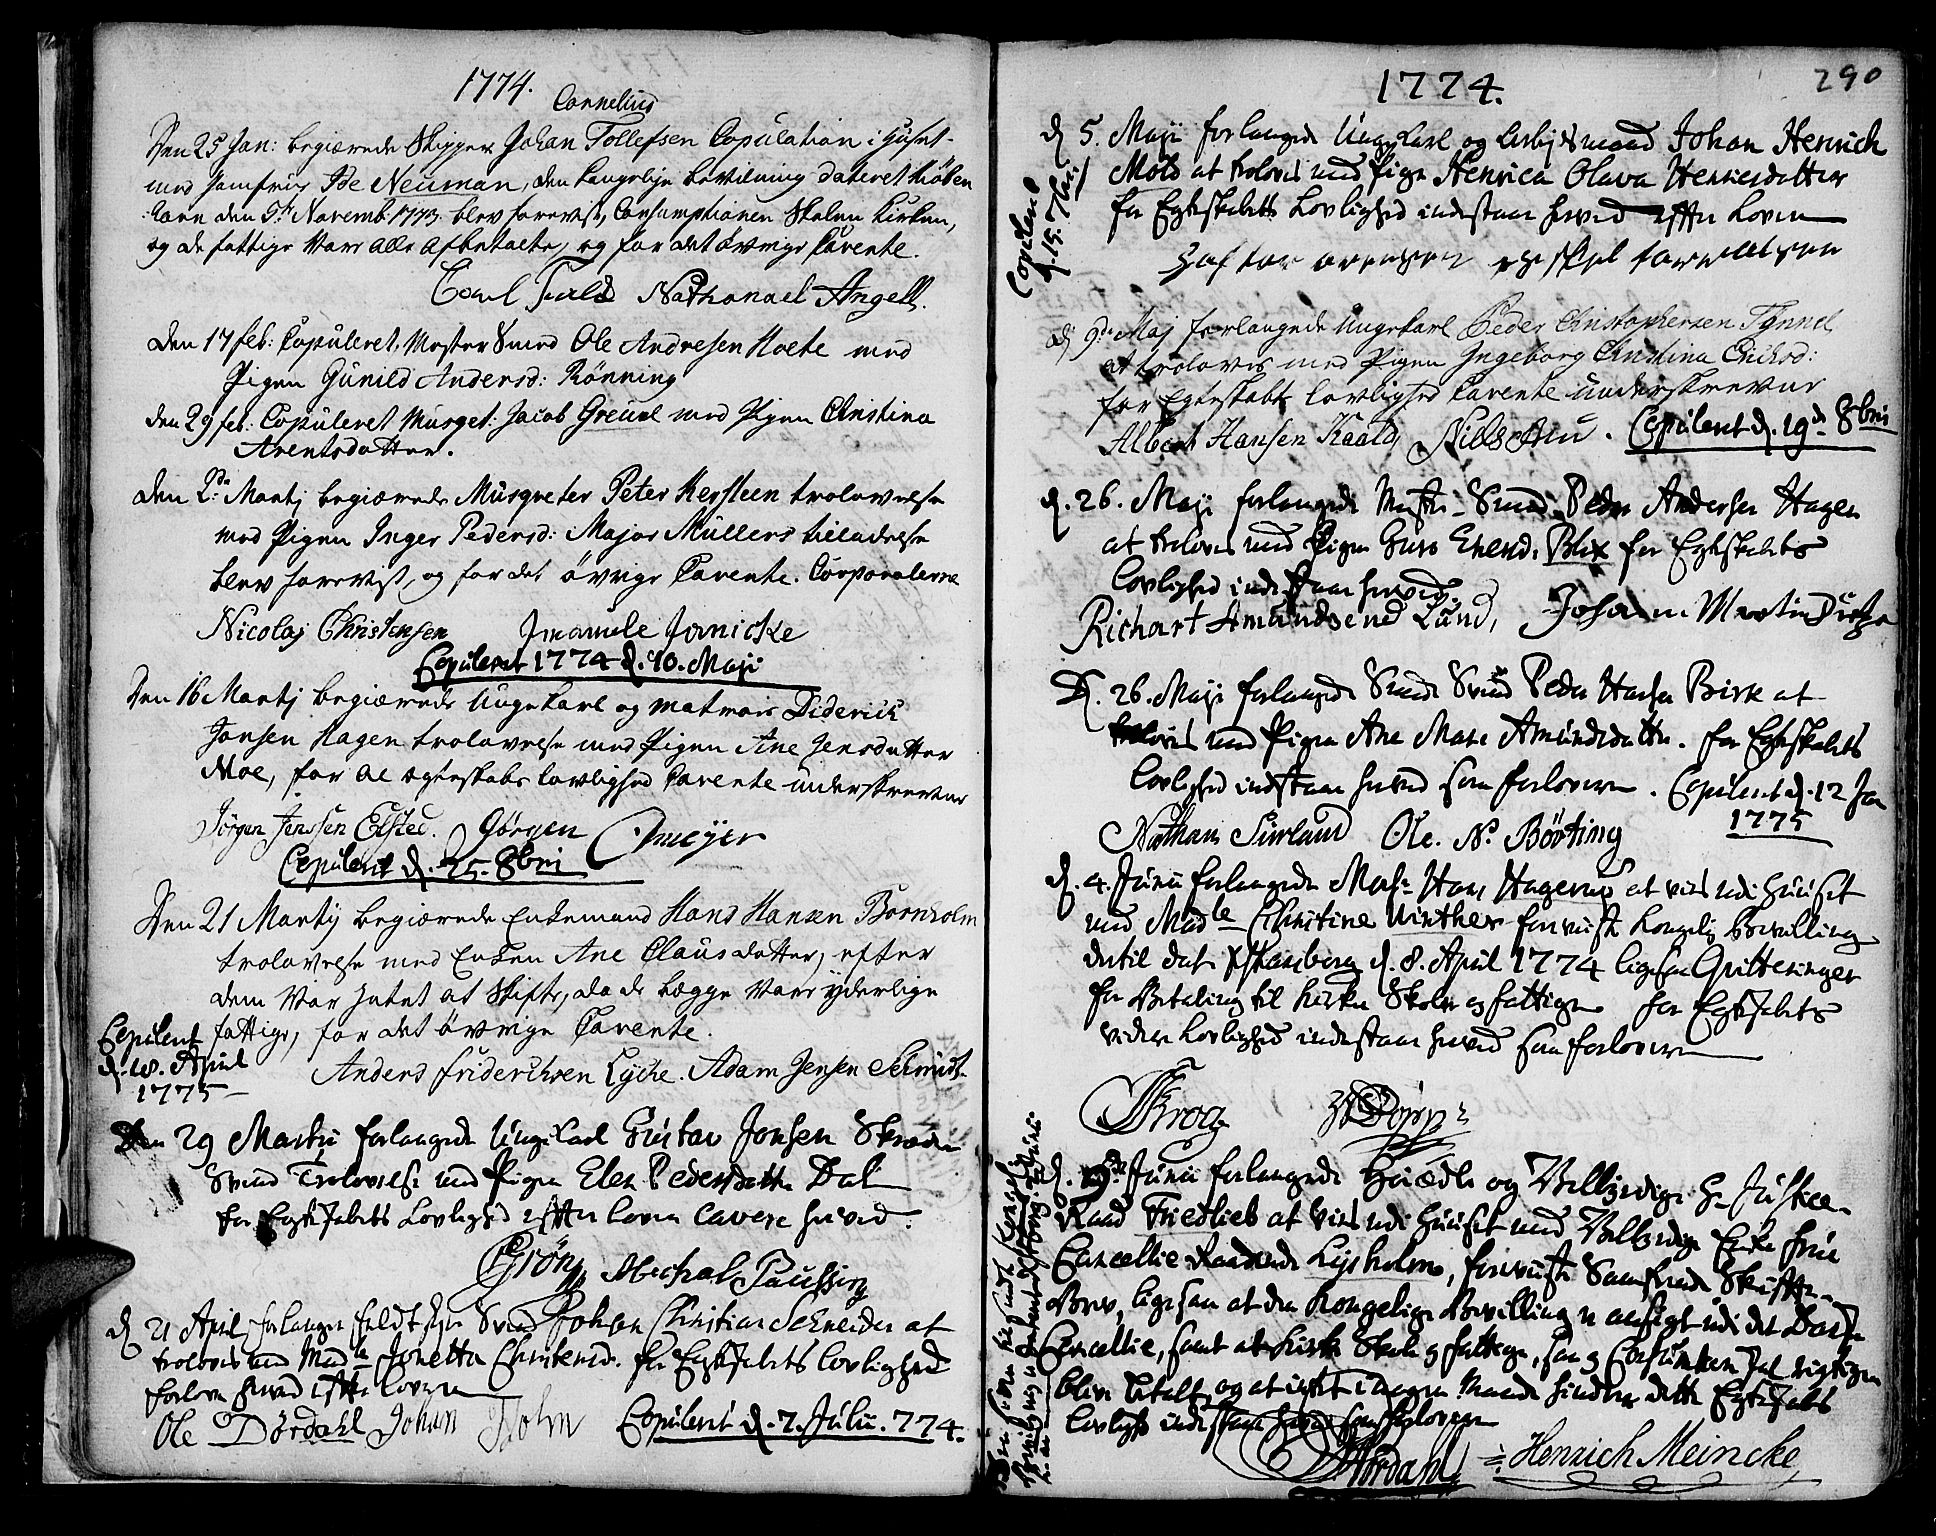 1774.
Cornelius
Den 25 Jan: begiærede Skipper Johan Tollefsen Copulation i Huset
med Jomfrue Ide Neuman, den kongelige bevilning dateret Kiöben
havn den 5te Novemb: 1773. blev foreviist, Consumptionen Skolen Kirken,
og de fattige vare alle afbetalte, og for det övrige Cavente.
Nathanael Angell.
Den 17 feb: Copuleret Mester Svend Ole Andresen Hoete med
Pigen Gunild Andersd: Rönning
den 29 feb: Copuleret Musqet: Jacob Greuel med Pigen Christina
Arentsdatter.
Den 2de Martj begiærede Musqueter Peter Kersteen trolovelse
med Pigen Inger Pedersd: Major Müllers tilladelse
blev foreviist, og for det övrige Cavente Corporalerne
Nicolaj Christensen Imanuele Jenicke
Copuleret 1774 d. 10. Maji
Den 16 Martj begiærede Ungekarl og matros Diderich
Jonsen Hagen trolovelse med Pigen Ane Jensdatter
Moe, for de egteskabs lovlighed Cavente underskrevne
Jörgen Jenssen Elsted. Görgen Omeÿer
Copuleret d. 25. 8bri
Den 21 Martij begiærede Enkemand Hans Hansen Bornholm
trolovelse med Enken Ane Clausdatter, efter
dem var intet at Skifte, da de begge vare yderlige
fattige, for det övrige Cavente.
Copuleret
d. 18. April
1775
Anders Friderichsen Lyche. Adam Jensen Schmidt
Den 29 Martii forlangede Ungekarl Gustav Jonsen Skræder
Svend Trolovelse med Pigen Elen Pedersdatter Dal
for Egteskabets Lovlighed efter loven cavere herved.
Grön Michael Taussing
d 21 April forlanger Feldtskjer Svend Johan Christian Schneider at
troloves med Madle Jonetta Christensd. for Egteskabets lovlighed
forlove herved efter loven
Ole Dördahl Johan Holm Copuleret d. 7. Julii. 774.
290
1774.
d 5. Maji forlangede Ungekarl og Arbejdsmand Johan Henrich
Mold at troloves med Pigen Henrica Olava Hennesdatter
for Egteskabets Lovlighed indestaar herved efter Loven
Copuleret
d. 15. 7bris
d 9de Maj forlangede Ungekarl Peder Christophersen Tynnel
at troloves med Pigen Ingeborg Christina Erichsd:
for Egteskabets lovlighed Cavente underskrevne
Albert Hansen Kaald, Copuleret d. 19de 8bris
d. 26. Maji forlangede Mester-Svend Peder Andersen Hagen
at troloves med Pigen Guro Erensd. Blix for Egteskabets
lovlighed indestaar herved.
Richart Amundsened Lund, Johan Martin
D. 26. Maji forlangede Smede Svend Peder Hansen Birk at
troloves med Pigen Ane Marie Amundsdatter. for Egteskabets
lovlighed indestaar herved som forlovere. Copuleret d. 12 Jan
1775
Nathan Surland Ole. N. Börting
d. 4. Junii forlangede Mosr Hans Hagerup at vies udi Huuset
med Madle Christine Winther foreviiste kongelig bevilling
dertil dat. Christiansborg d. 8. April 1774 ligesaa Qvitteringer
for Betaling til Kirke Skole og fattige for Egteskabets
videre Lovlighed indestaar herved som forlovere
Krog
d. 9de Junii forlangede Höiædle og Velbyrdige Hr Justice-
Raad Friedlieb at vies udi Huuset med Velbyrdige Enke frue
Cancellie Raadinde Lysholm, foreviiste Samfrende Skifte-
Brev, ligesaa at den Kongelige Bevilling er ansögt udi det Danske
Cancellie, samt at Kirke Skole og fattige, saa og Consumtion skal rigtigen
blive betalt, og at intet i nogen Maade hindrer dette Egteskabs
lovlighed indestaar herved som forlovere
Hördahl Henrich Meincke